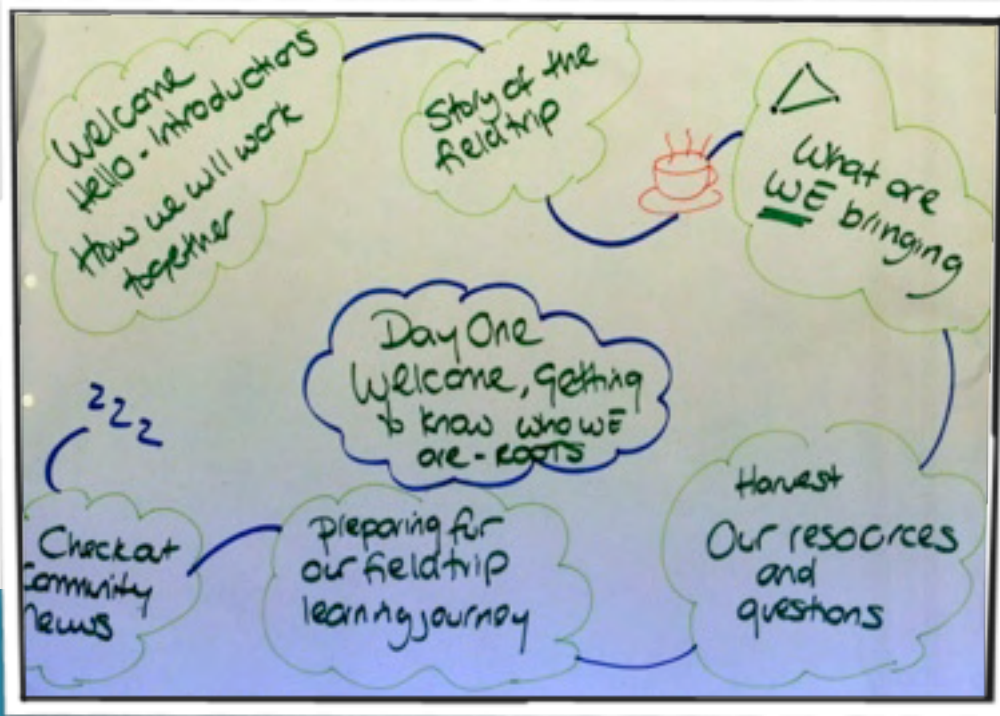 Welcome
Hello - Introductions
How we will work
together
Story of the
fieldtrip
What are
WE bringing
Day One
Welcome, Getting
to know who WE
are - ROOTS
Harvest
Our resources
and
questions
Preparing for
our fieldtrip
learning journey
Checkout
Community
News
zzz